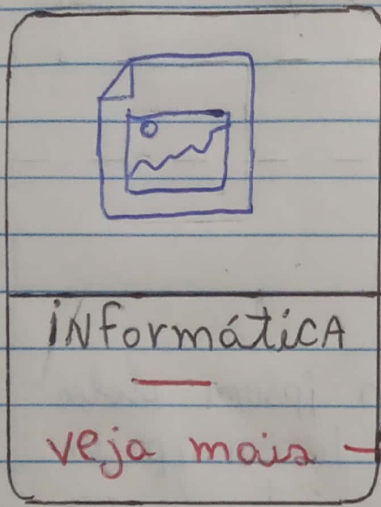 iNformáticA
veja mais